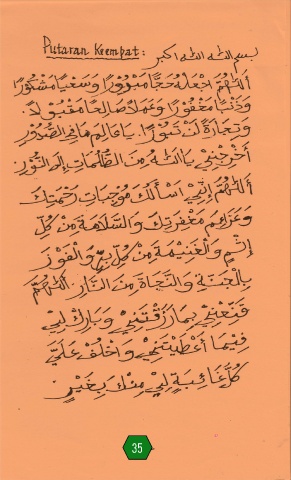 Putaran Keempat : بسم الله الله اكبر
اَللّٰهُمَّ اجْعَلْهُ حَجًّا مَبْرُوْرًا وَسَعْيًا مَشْكُوْرًا
وَذَنْبًا مَغْفُوْرًا وَعَمَلًا صَالِحًا مَقْبُوْلًا
وَتِجَارَةً لَنْ تَبُوْرَا. يَا عَالِمَ مَا فِى الصُّدُوْرِ
أَخْرِجْنِيْ يَا اَللّٰهُ مِنَ الظُّلُمَاتِ إِلَى النُّوْرِ.
اَللّٰهُمَّ إِنِّيْ اَسْأَلُكَ مُوْجِبَاتِ رَحْمَتِكَ
وَعَزَائِمَ مَغْفِرَتِكَ وَالسَّلَامَةَ مِنْ كُلِّ
إِثْمٍ وَالْغَنِيْمَةَ مِنْ كُلِّ بِرٍّ وَالْفَوْزَ
بِالْجَنَّةِ وَالنَّجَاةَ مِنَ النَّارِ. اَللّٰهُمَّ
قَنِّعْنِيْ بِمَا رَزَقْتَنِيْ وَبَارِكْ لِيْ
فِيْمَا أَعْطَيْتَنِيْ وَاخْلُفْ عَلَيَّ
كُلَّ غَائِبَةٍ لِيْ مِنْكَ بِخَيْرٍ
35